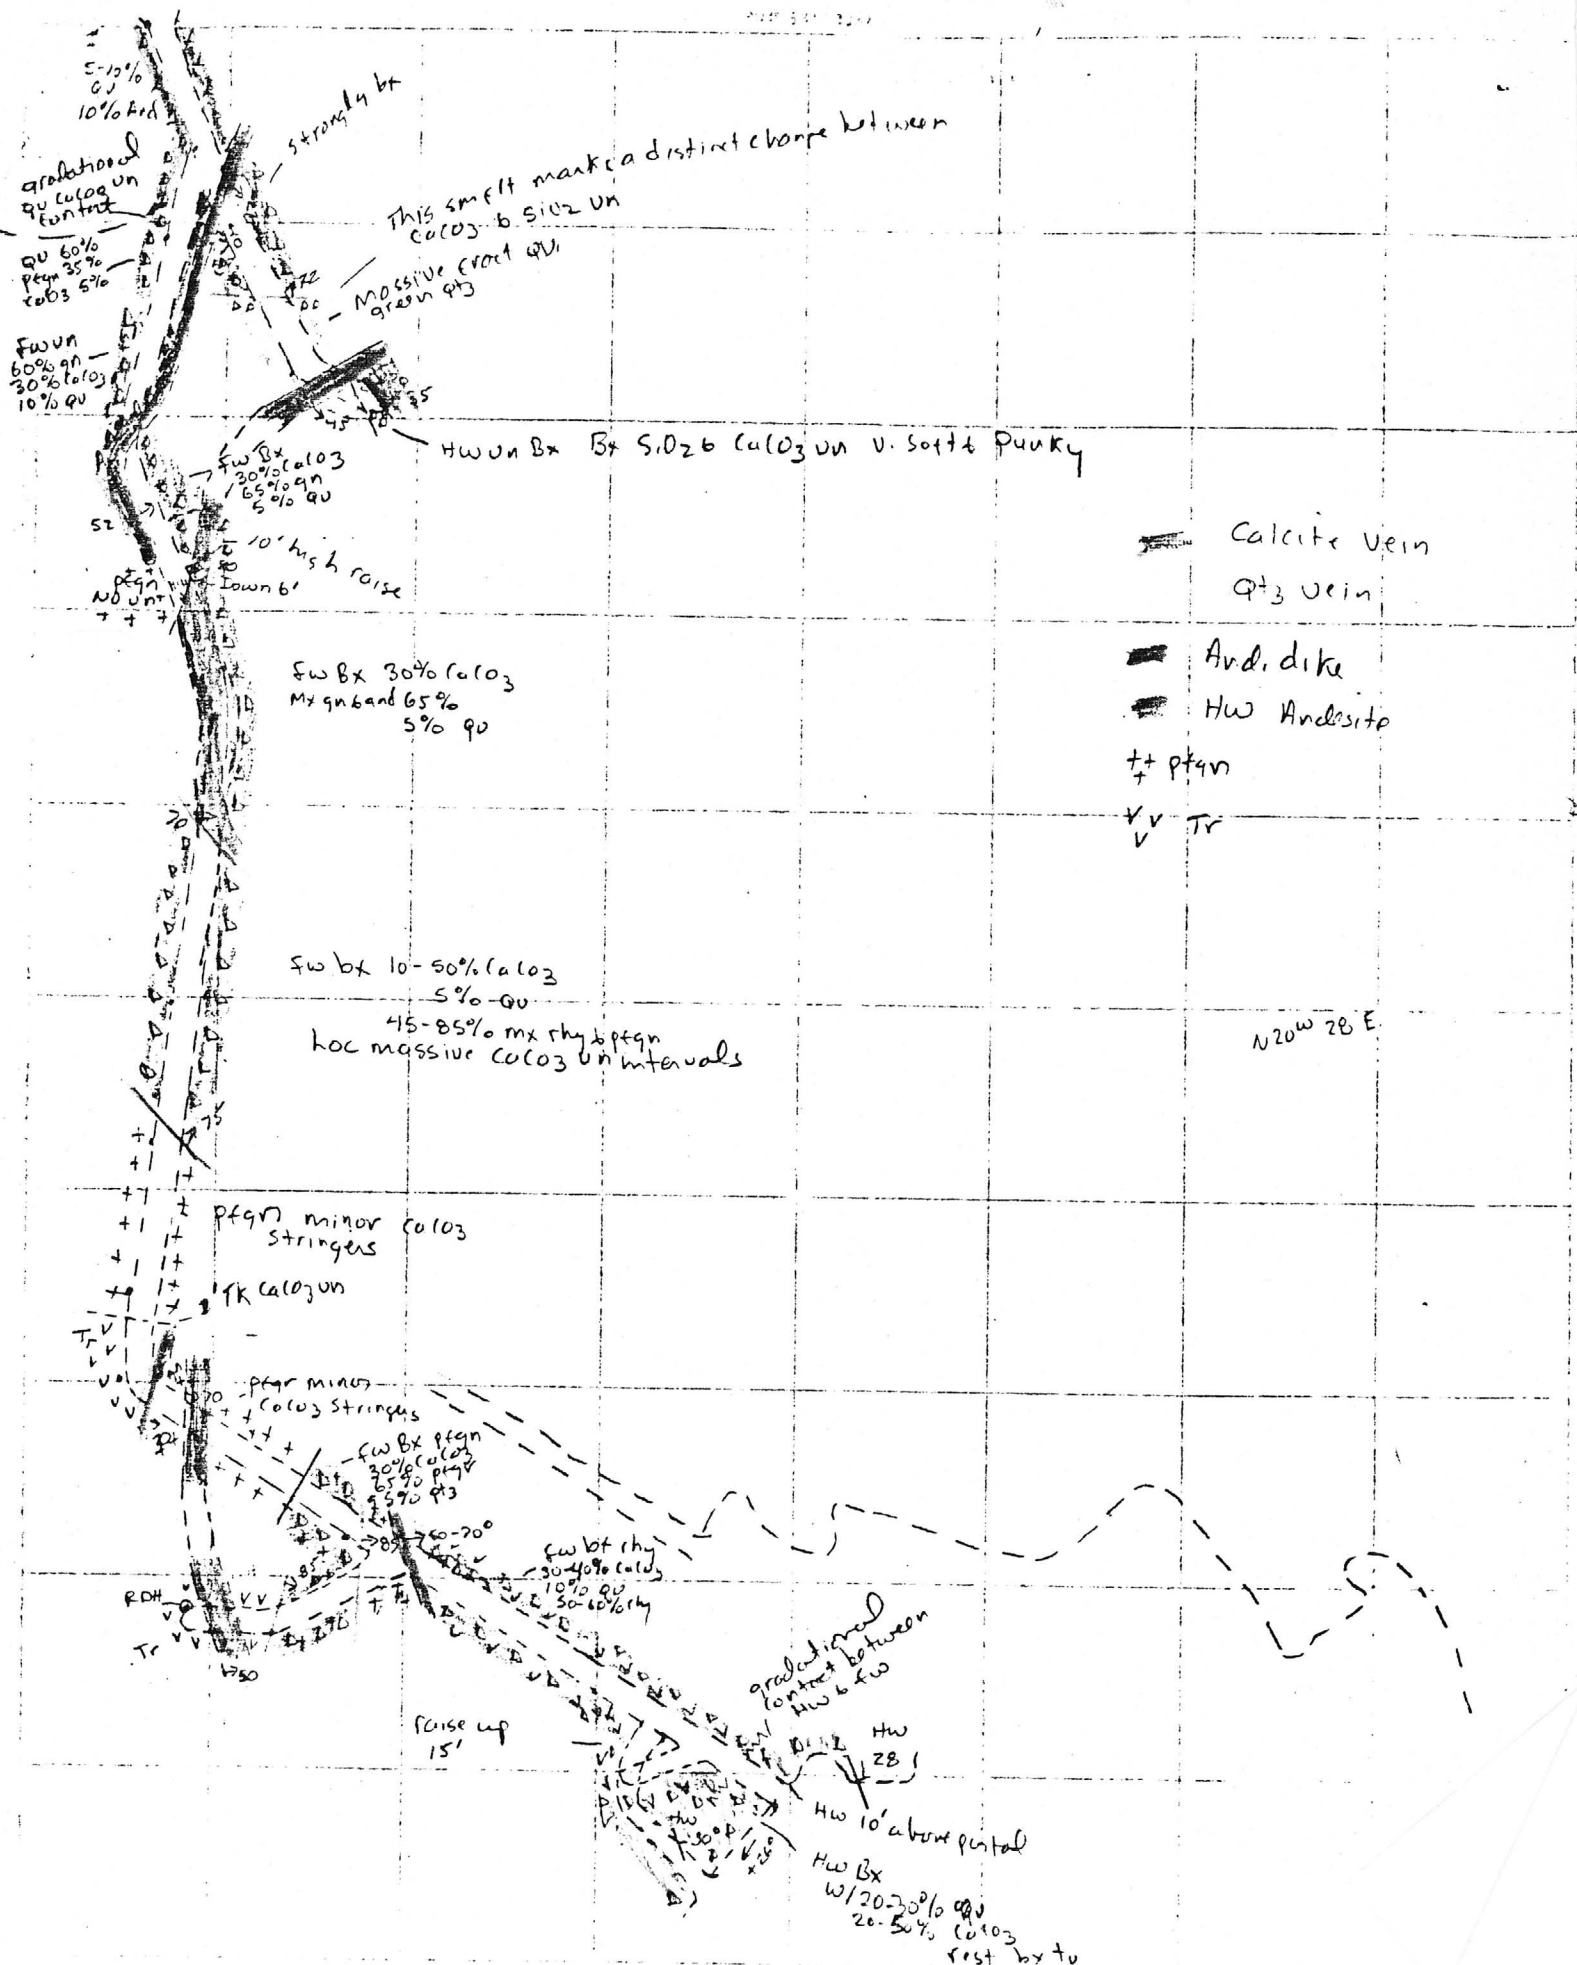 5-10%
QV
10% And
strongly bx
gradational
QV CaCO3 vn
contact
This smelt marks a distinct change between
CaCO3 & SiO2 vn
QV 60%
ptgn 35%
CaCO3 5%
72
Massive fract QV,
green qtz
FW vn
60% gn
30% CaCO3
10% QV
35
45
HW vn Bx Bx SiO2 & CaCO3 vn v. soft & Punky
FW Bx
30% CaCO3
65% gn
5% QV
52
10' high raise
Down 6'
ptgn
NO vn
Calcite Vein
Qtz Vein
And. dike
HW Andesite
ptgn
Tr
FW Bx 30% CaCO3
Mx gn band 65%
5% QV
70
FW bx 10-50% CaCO3
5% QV
45-85% mx rhy & ptgn
Loc massive CaCO3 vn intervals
N20W 28 E
75
ptgn minor CaCO3
stringers
1' TK CaCO3 vn
Tr
70
ptgn minor
CaCO3 Stringers
FW Bx ptgn
30% CaCO3
65% ptgn
5% qtz
85
60-70°
85
FW bx rhy
30-40% CaCO3
10% QV
50-60% rhy
RDH
Tr
50
gradational
contact between
HW & FW
raise up
15'
HW
28
HW 10' above portal
HW
30°
HW Bx
W/ 20-30% QV
20-50% CaCO3
rest bx tv